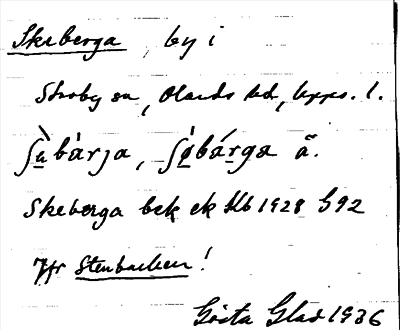 Skeberga, by i
Skoby sn, Olands hd, Upps. l.
ʃù̠bàrja, ʃǿ̠bár̠ga ä.
Skeberga bek ek Kb 1928 S 92
Jfr Stenbacken!
Gösta Glad 1936